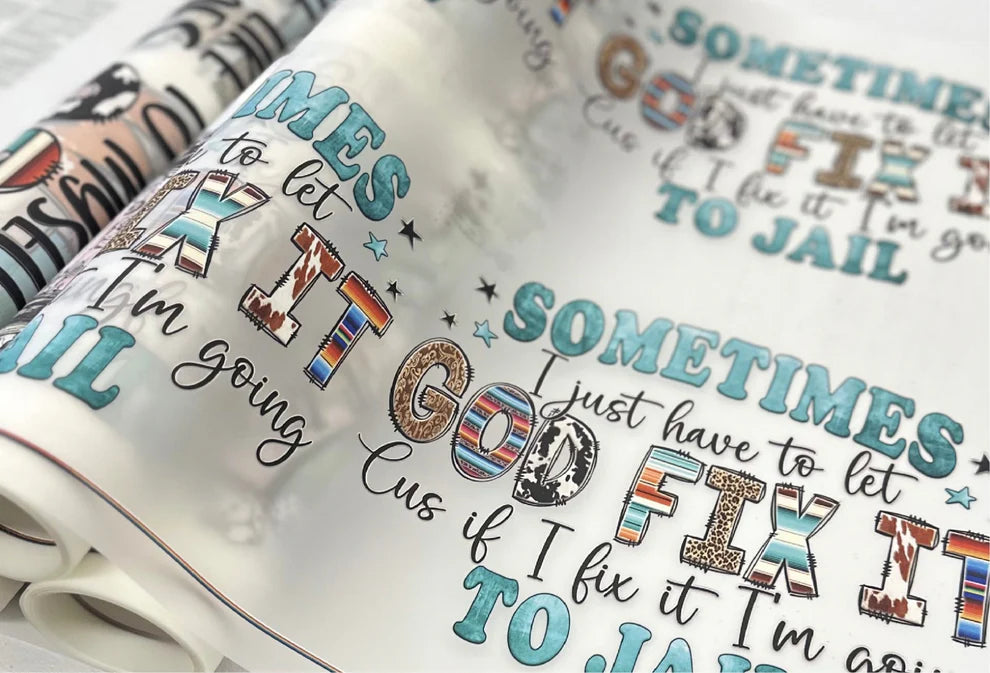 SOMETIMES
I just have to let
GOD FIX IT
Cus if I fix it I'm going
TO JAIL
IMES
to let
IX IT
I'm going
AIL
SOMETIMES
I just have to let
GOD FIX I
Cus if I fix it I'm go
TO JAIL